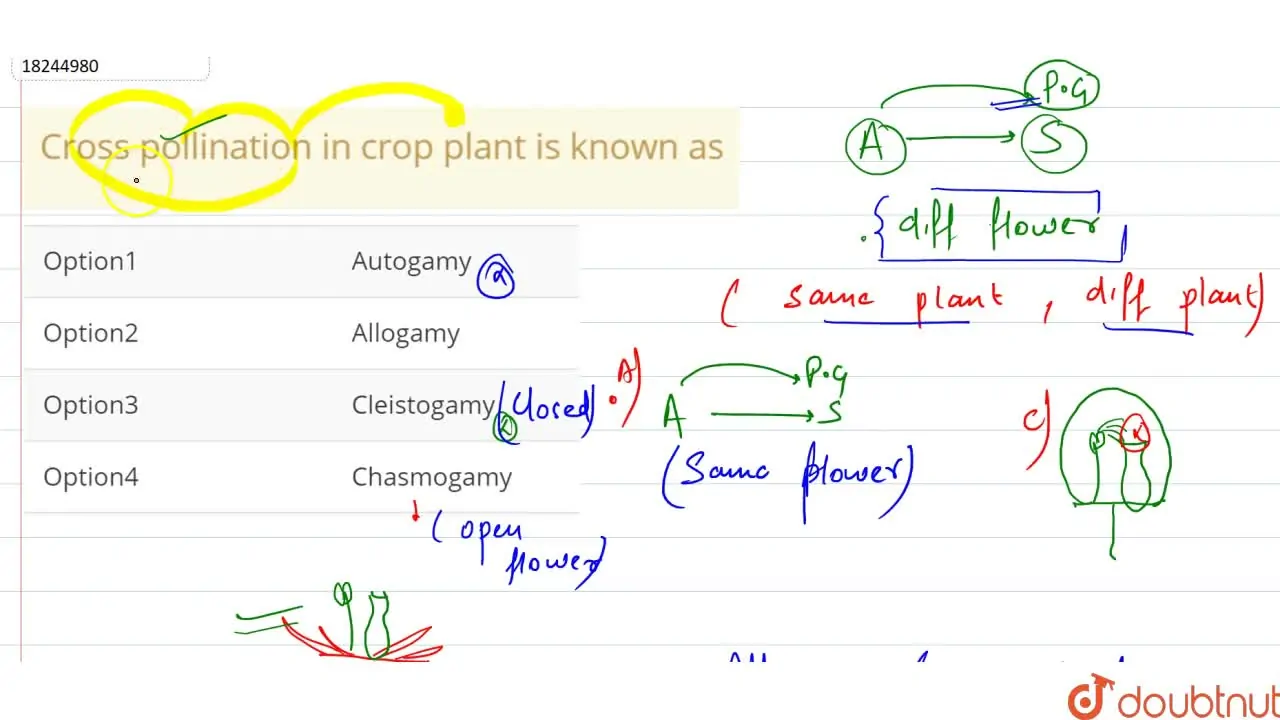 18244980
Cross pollination in crop plant is known as
Option1 Autogamy
Option2 Allogamy
Option3 Cleistogamy (closed)
Option4 Chasmogamy
(open
flower)
P.G
A S
{diff flower
(same plant, diff plant)
A)
P.G
A S
(Same flower)
C)
doubtnut